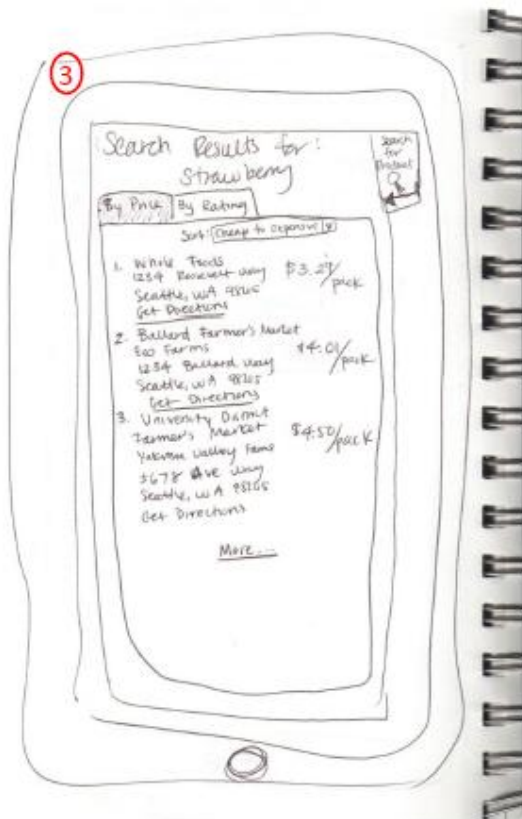 3
Search Results for:
Strawberry
Search
for
Product
By Price
By Rating
Sort: Cheap to expensive
1. Whole Foods
1234 Roosevelt Way
$3.29/pack
Seattle, WA
Get Directions
2. Ballard Farmer's Market
Farms
$4.01/pack
1234 Ballard Way
Seattle, WA
Get Directions
3. University District
Farmer's Market
$4.50/pack
Yakima Valley Farms
5678 Ave Way
Seattle, WA
Get Directions
More...